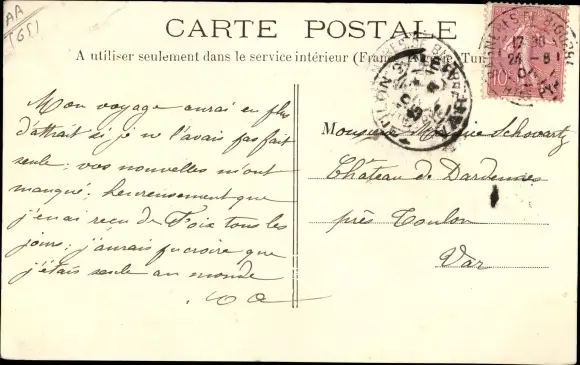 AA
(65)
CARTE POSTALE
A utiliser seulement dans le service intérieur (France, Tun
Mon voyage aurai eu plus
d'attrait si je ne l'avais pas fait
seule; vos nouvelles m'ont
manqué; heureusement que
j'en ai reçu de Foix tous les
jours; j'aurais pu croire que
j'étais seule au monde
Monsieur Maurice Schwartz
Château de Dardennes
près Toulon
Var
BIGORRE
17 30
24 -8
04
TOULON
VAR
10